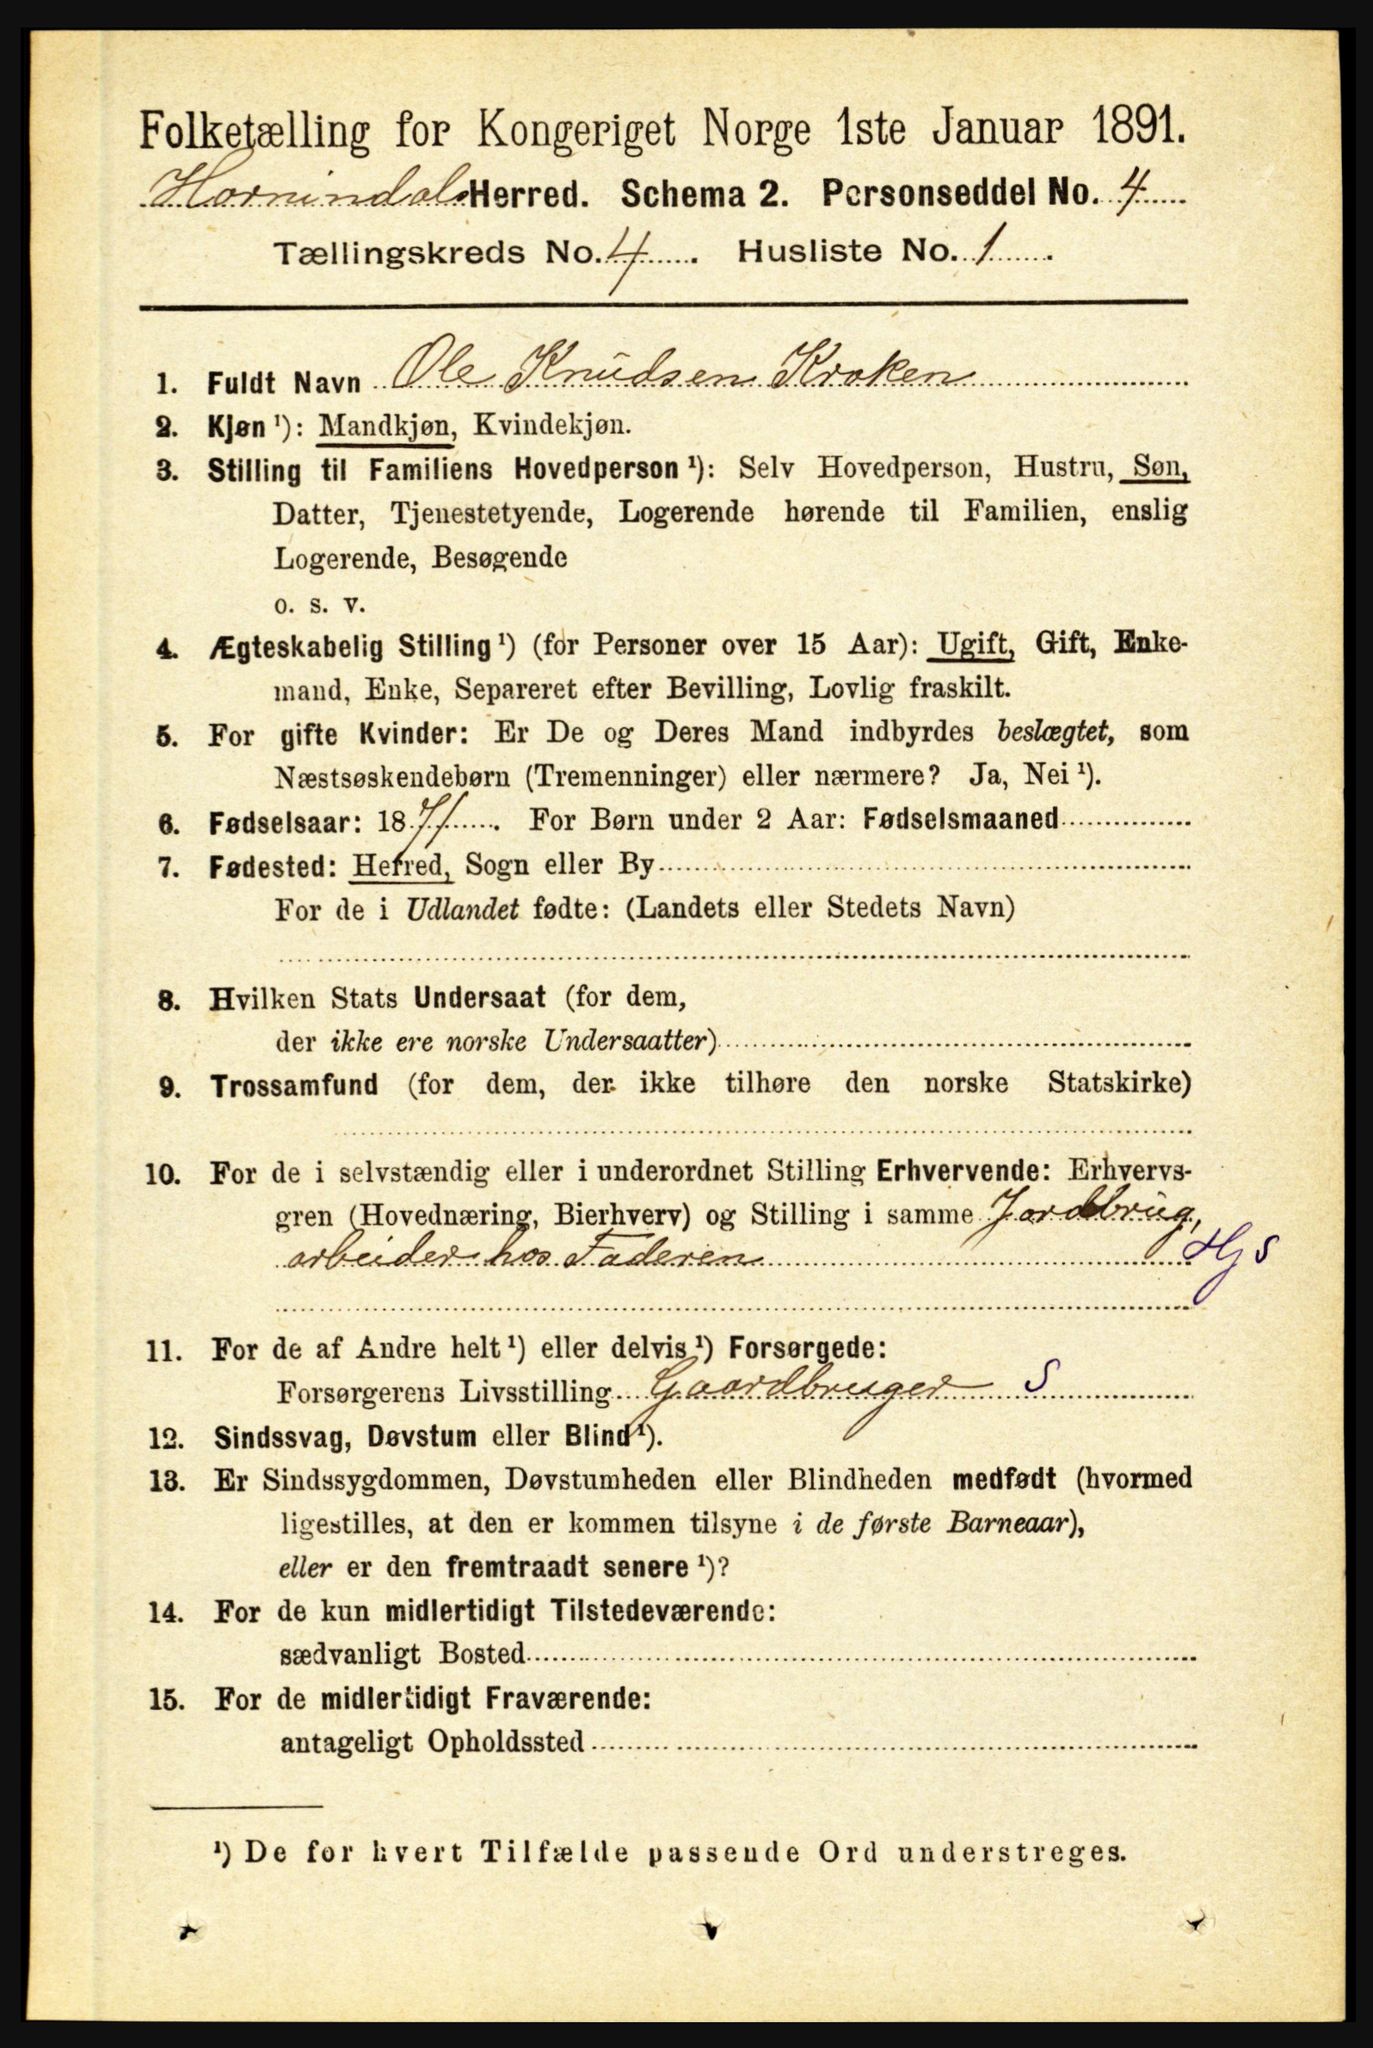 Folketælling for Kongeriget Norge 1ste Januar 1891.
Hornindals Herred. Schema 2. Personseddel No. 4
Tællingskreds No. 4. Husliste No. 1.
1. Fuldt Navn Ole Knudsen Kroken
2. Kjøn ¹): Mandkjøn, Kvindekjøn.
3. Stilling til Familiens Hovedperson ¹): Selv Hovedperson, Hustru, Søn,
Datter, Tjenestetyende, Logerende hørende til Familien, enslig
Logerende, Besøgende
o. s. v.
4. Ægteskabelig Stilling ¹) (for Personer over 15 Aar): Ugift, Gift, Enke-
mand, Enke, Separeret efter Bevilling, Lovlig fraskilt.
5. For gifte Kvinder: Er De og Deres Mand indbyrdes beslægtet, som
Næstsøskendebørn (Tremenninger) eller nærmere? Ja, Nei ¹).
6. Fødselsaar: 1871. For Børn under 2 Aar: Fødselsmaaned
7. Fødested: Herred, Sogn eller By
For de i Udlandet fødte: (Landets eller Stedets Navn)
8. Hvilken Stats Undersaat (for dem,
der ikke ere norske Undersaatter)
9. Trossamfund (for dem, der ikke tilhøre den norske Statskirke)
10. For de i selvstændig eller i underordnet Stilling Erhvervende: Erhvervs-
gren (Hovednæring, Bierhverv) og Stilling i samme Jordbrug,
arbeider hos Faderen Hj S
11. For de af Andre helt ¹) eller delvis ¹) Forsørgede:
Forsørgerens Livsstilling Gaardbruger S
12. Sindssvag, Døvstum eller Blind ¹).
13. Er Sindssygdommen, Døvstumheden eller Blindheden medfødt (hvormed
ligestilles, at den er kommen tilsyne i de første Barneaar),
eller er den fremtraadt senere ¹)?
14. For de kun midlertidigt Tilstedeværende:
sædvanligt Bosted
15. For de midlertidigt Fraværende:
antageligt Opholdssted
¹) De for hvert Tilfælde passende Ord understreges.